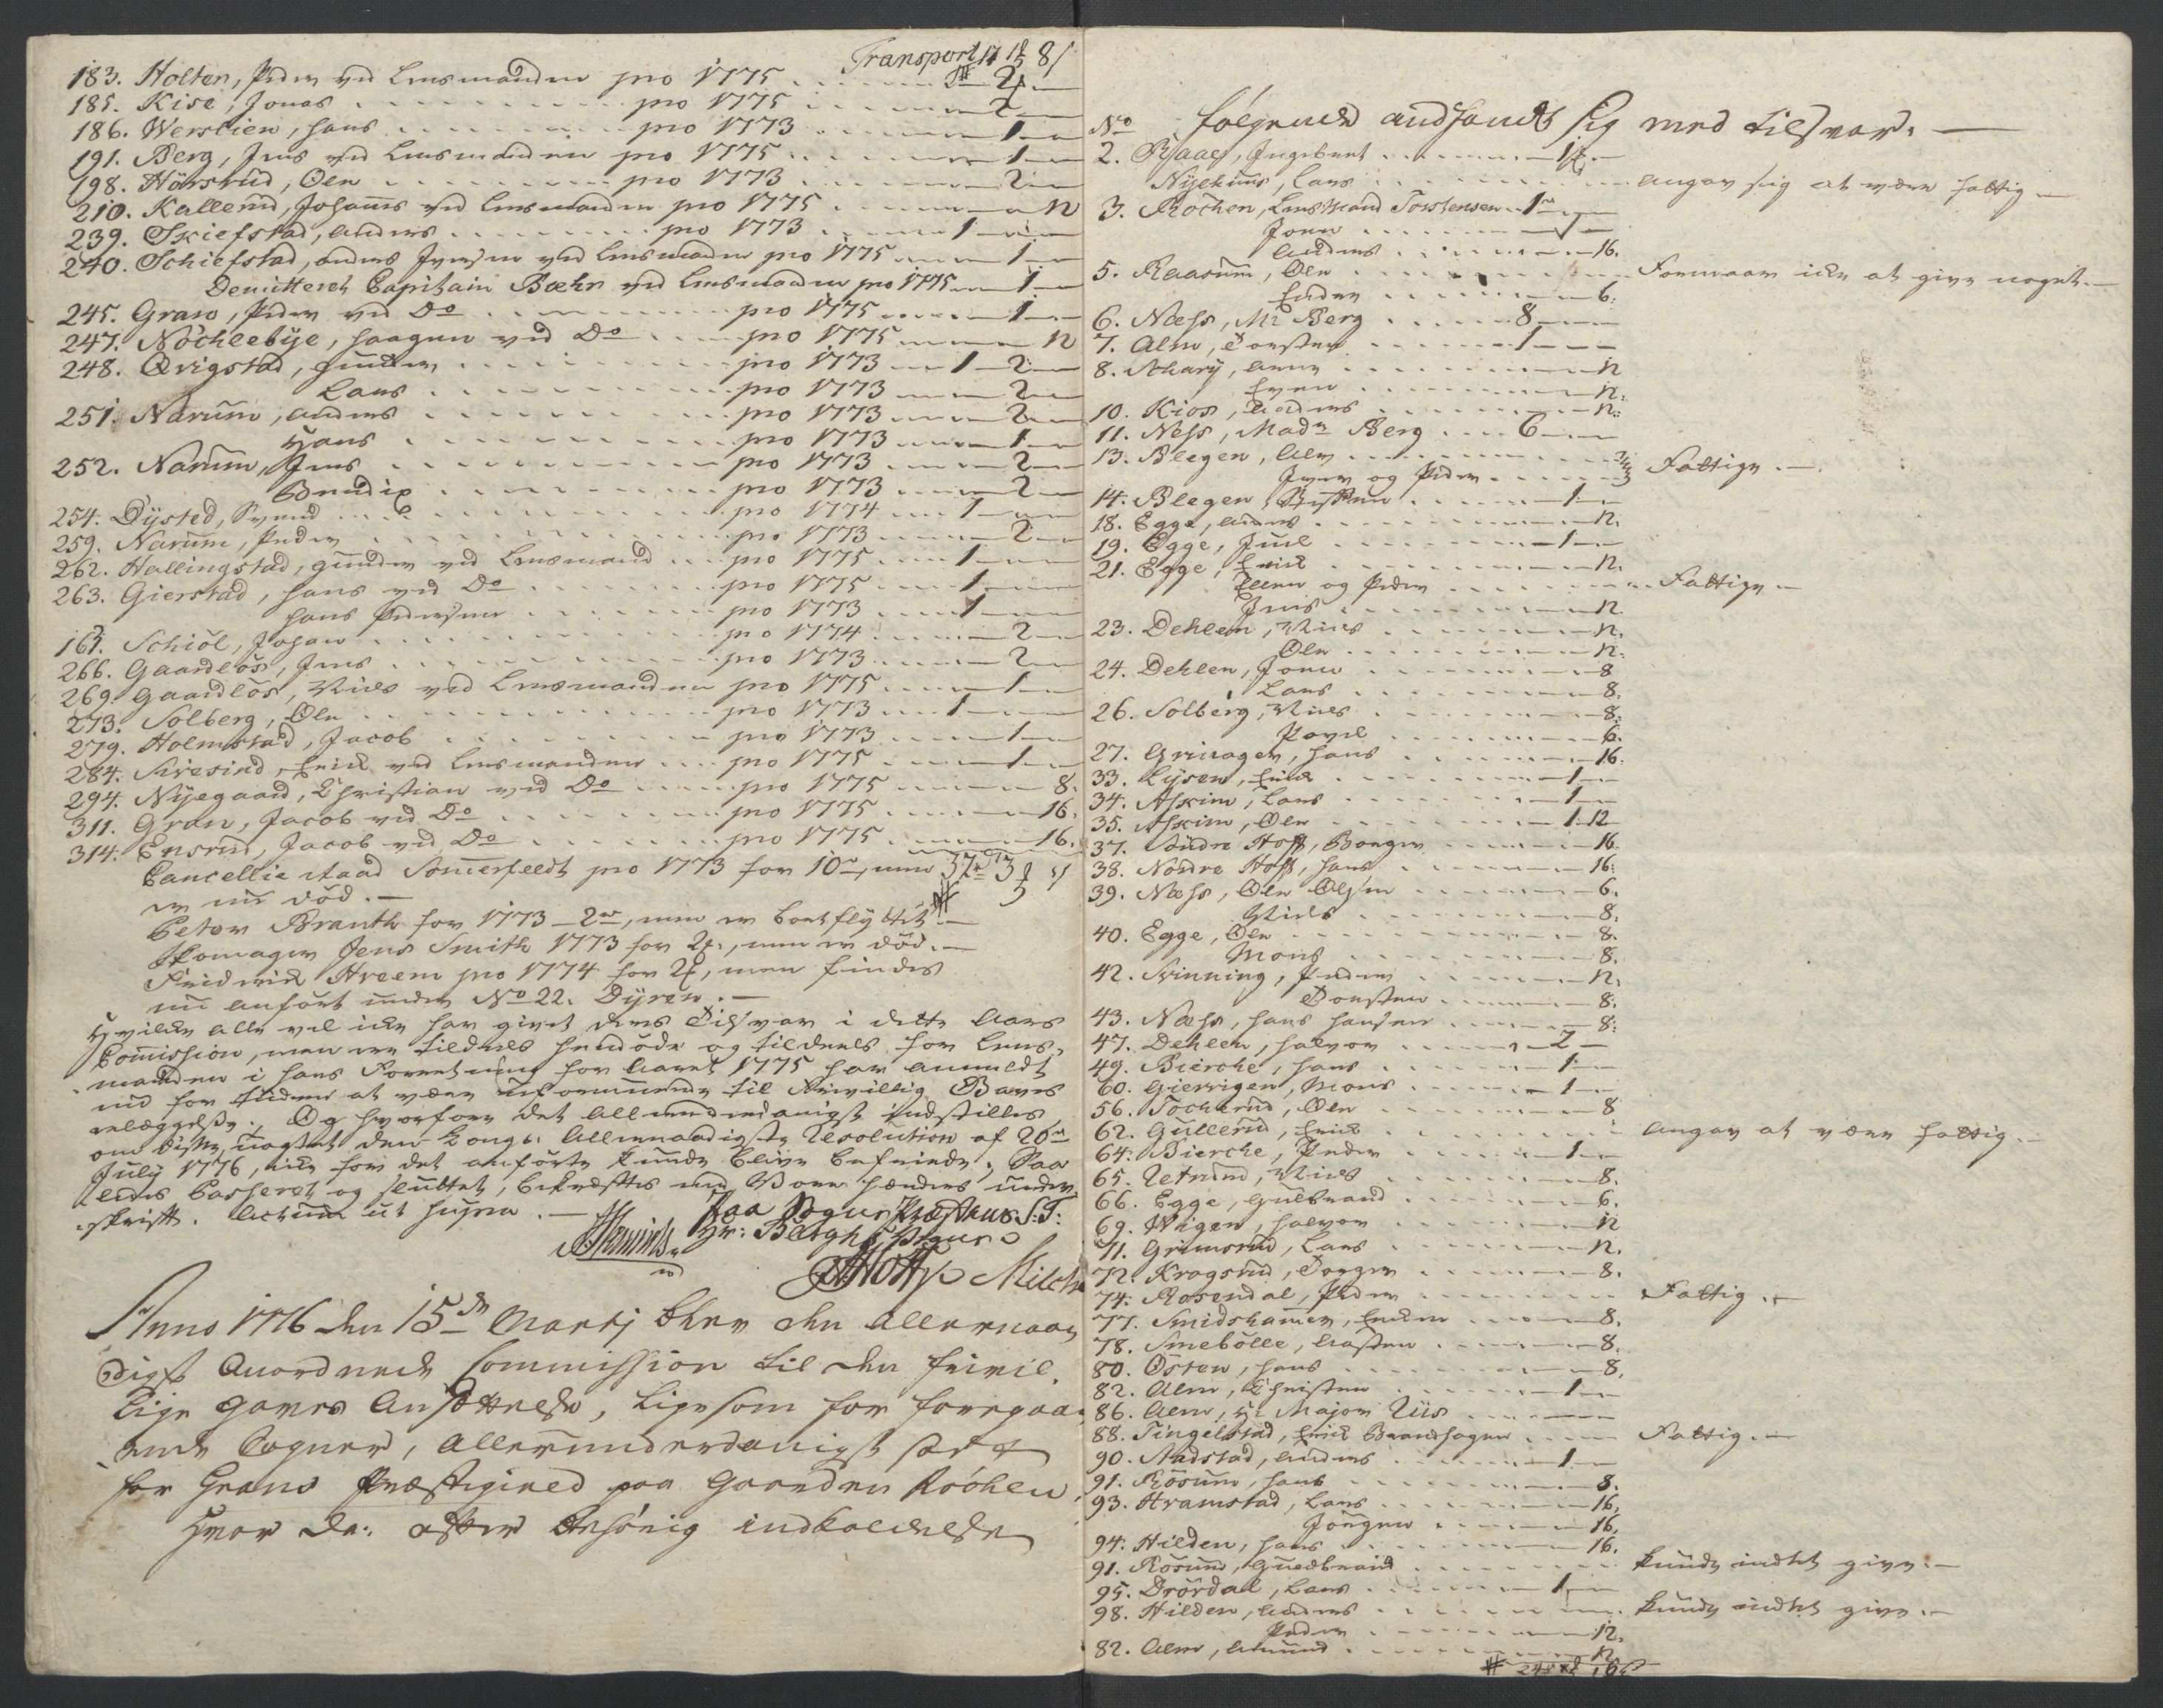 Transport 11 1 8 s
183. Holten, Peder ved Lensmanden pro 1775 2
185. Kise, Jonas pro 1775 2
186. Werstien, Hans pro 1773 1
191. Berg, Jens ved Lensmanden pro 1775 1
198. Hörsrud, Ole pro 1773 2
210. Kallerud, Johans ved Lensmanden pro 1775 12
239. Skiefstad, Anders pro 1773 1
240. Schiefstad, Anders Iversen ved Lensmanden pro 1775 1
Demitteret Capitain Bæhr ved Lensmanden pro 1775 1
245. Gran, Peder ved Do pro 1775 1
247. Nöchlebÿe, Haagen ved Do pro 1775 12
248. Qvigstad, Gunder pro 1773 1 2
Lars pro 1773 2
251. Narum, Anders pro 1773 2
Hans pro 1773 1
252. Narum, Jens pro 1773 2
Bendix pro 1773 2
254. Dÿsted, Svend pro 1774 1
259. Narum, Peder pro 1773 2
262. Hallingstad, Gunder ved Lensmand pro 1775 1
263. Gierstad, Hans ved Do pro 1775 1
Hans Pedersen pro 1773 1
161. Schiöl, Johan pro 1774 2
266. Gaardlös, Jens pro 1773 2
269. Gaardlös, Niels ved Lensmanden pro 1775 1
273. Solberg, Ole pro 1773 1
279. Holmstad, Jacob pro 1773 1
284. Erich ved Lensmanden pro 1775 1
294. Nÿegaard, Christian ved Do pro 1775 8.
311. Gran, Jacob ved Do pro 1775 16.
314. Ensrud, Jacob ved Do pro 1775 16.
Cancellie Raad Somerfeldt pro 1773 for 10r, men 37 3
er nu död.
Peter Brandt for 1773 2r, men er bortflÿttet.
Skomager Jens Smith 1773 for 2, men er död.
Friderich Hreem pro 1774 for 2, men findes
nu anfört under No 22. Dÿren.
Hvilke alle vel icke har givet deres Tilsvar i dette Aars
Commission, men ere tildeels hendöde og tildeels for Lens-
manden i hans Forretning for Aaret 1775 har anmeldt
sig for Tiden at være uformuende til frivillig Gaves
erlæggelse, Og hvorfore det allerunderdanigst indstilles
om disse, uagtet den Kongl. Allernaadigste Resolution af 20de
Julÿ 1776, icke for det anförte kunde blive befriede; Saa
ledes Passeret og sluttet, bekræftes med Vore Hænders under-
skrift. Actum ut supra.
paa Sogne Præstens S: T:
Hr: Berghs Vegne
AHoff Milch
Anno 1776 den 15de Martj blev den Allernaa-
digst Anordnede Commission til den frivil-
lige Gaves Ansættelse, ligesom for foregaa-
ende Sogner, allerunderdanigst sat
for Grans Præstegield paa Gaarden Röchen
Hvor da: efter behörig indkaldelse
No følgende andfandt sig med tilsvar.
2. Raae, Ingebret 1
Nÿehuus, Lars angav sig at være fattig
3. Röchen, Lensmand Torstensen 1
Joen 1
Anders 16.
5. Raasum, Ole Formaar icke at give noget.
Peder 6.
6. Næss, Mr Berg 8
7. Alm, Torsten 1
8. Scharÿ, Arne 12
Even 12.
10. Kios, Anders 12.
11. Ness, Madm Berg 6
13. Blegen, Ale Fattige.
Iver og Peder
14. Blegen, 1
18. Egge, Anders 12.
19. Egge, Juul 1
21. Egge, Erich 12.
Ellen og Peder Fattige
Jens 12
23. Dehlen, Niels 12.
Ole 12.
24. Dehlen, Joen 8
Lars 8.
26. Solberg, Niels 8.
Povel 6.
27. Grinager, Hans 16.
33. Lÿsen, Erich 1
34. Askim, Lars 1
35. Askim, Ole 1.12
37. Söndre Hoff, Borger 16.
38. Nordre Hoff, Hans 16.
39. Næss, Ole Olsen 6.
Niels 8.
40. Egge, Ole 8.
Mons 8.
42. Svinning, Peder 12.
Torsten 8.
43. Næss, Hans Hansen 8.
47. Dehlen, Halvor 2
49. Bierche, Hans 1
60. Gierrigen, Mons 1
56. Tocherud, Ole 8
62. Gullerud, Erich angav at være fattig.
64. Bierche, Peder 1
65. Niels 8.
66. Egge, Gulbrand 6.
69. Wigen, Halvor 12
71. Grimsrud, Lars 12.
72. Krogsrud, Torger 8.
74. Rosendal, Peder Fattig.
77. Smidshamer, 8.
78. Smebölle, 8.
80. Östen, Hans 8.
82. Alm, Christen 1
86. Alm, Hr Major Riis
88. Tingelstad, Erich Brandhagen Fattig.
90. Aadstad, Anders 1
91. Rösum, Hans 8.
93. Hramstad, Lars 16.
Jörgen 16.
94. Hilden, Hans 16.
91. Rösum, Guldbrand kunde indtet give.
95. Drördal, Lars 1
98. Hilden, Anders kunde indtet give.
Peder 12.
82. Alm, Amund 12.